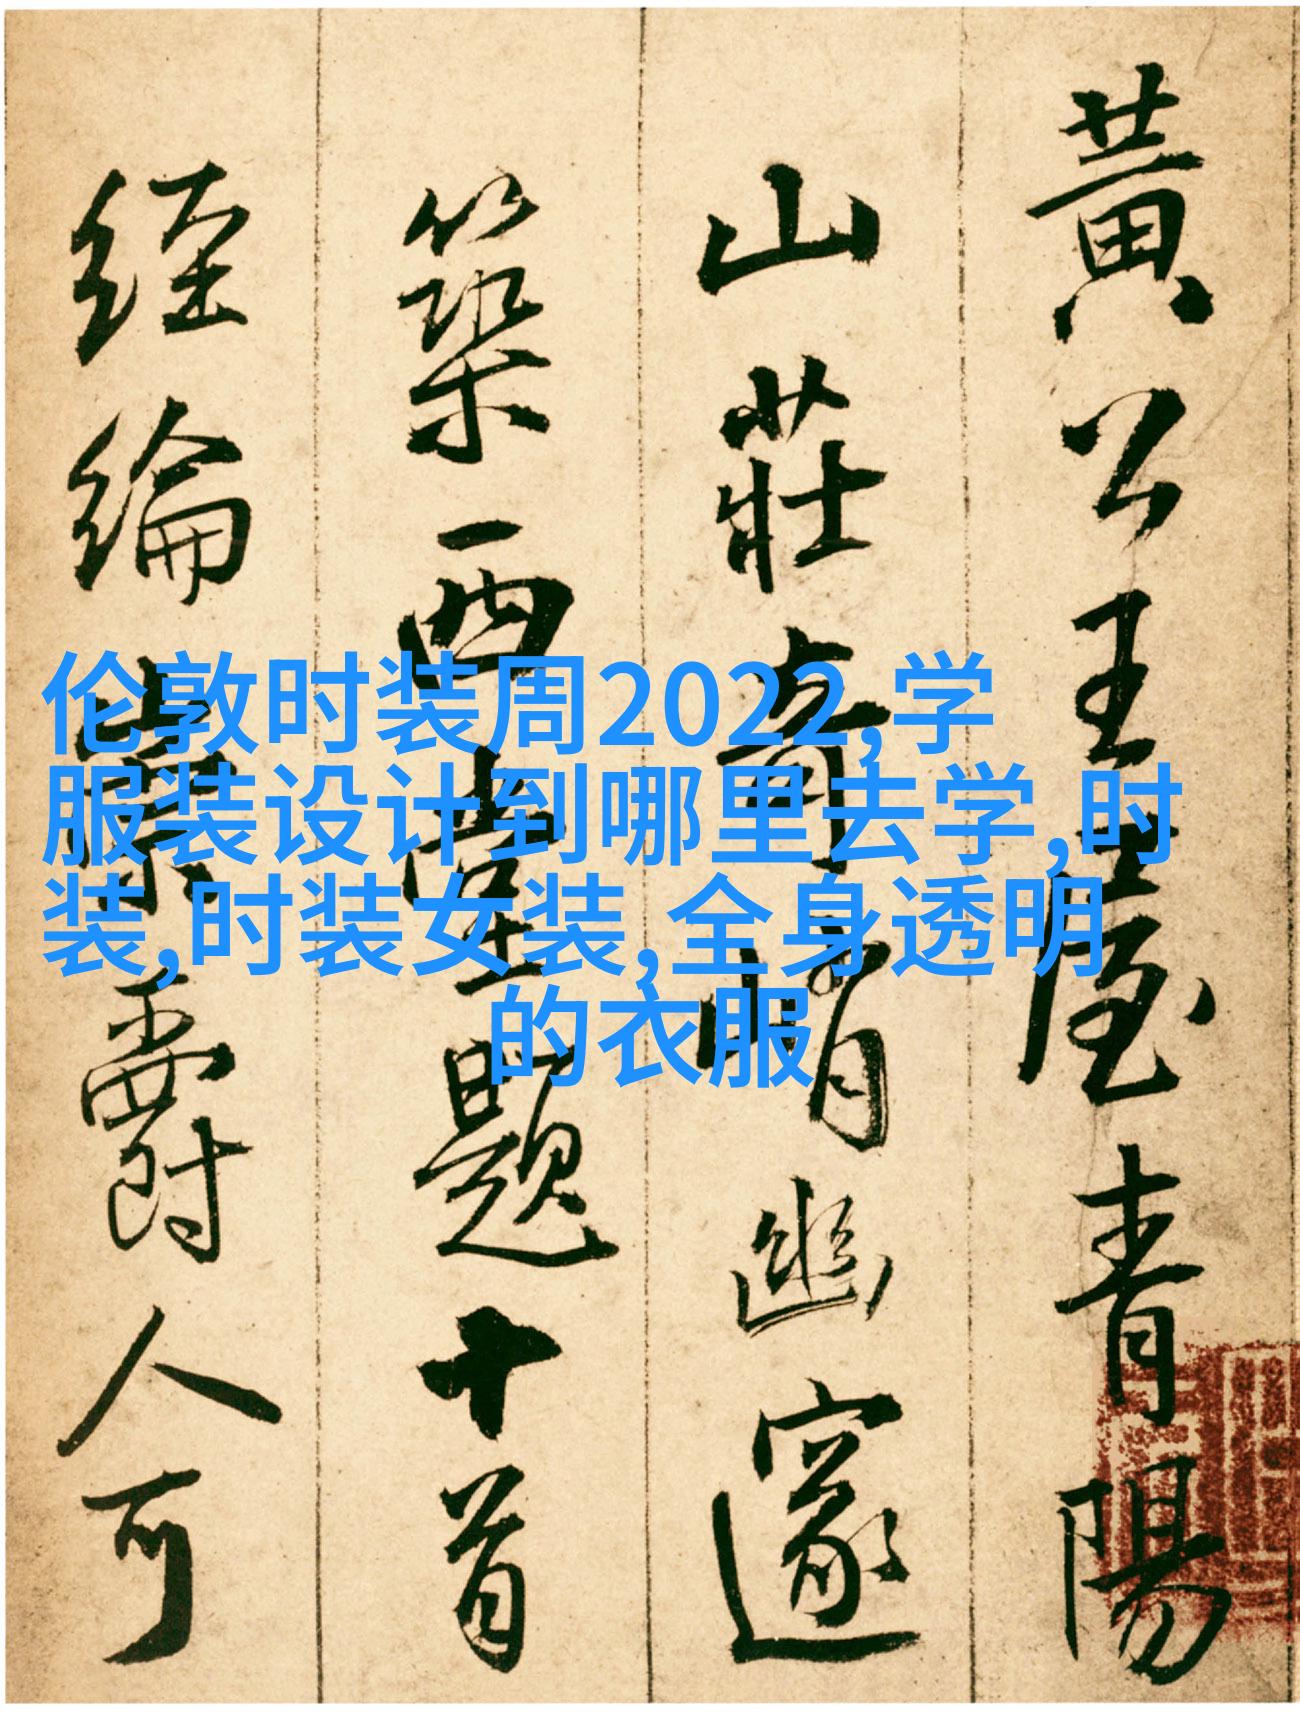 伦敦时装周2022,学
服装设计到哪里去学,时
装,时装女装,全身透明
的衣服
黃公王屋青陽
山莊奇情幽邃
築西堂題十首
經綸紫爵人可